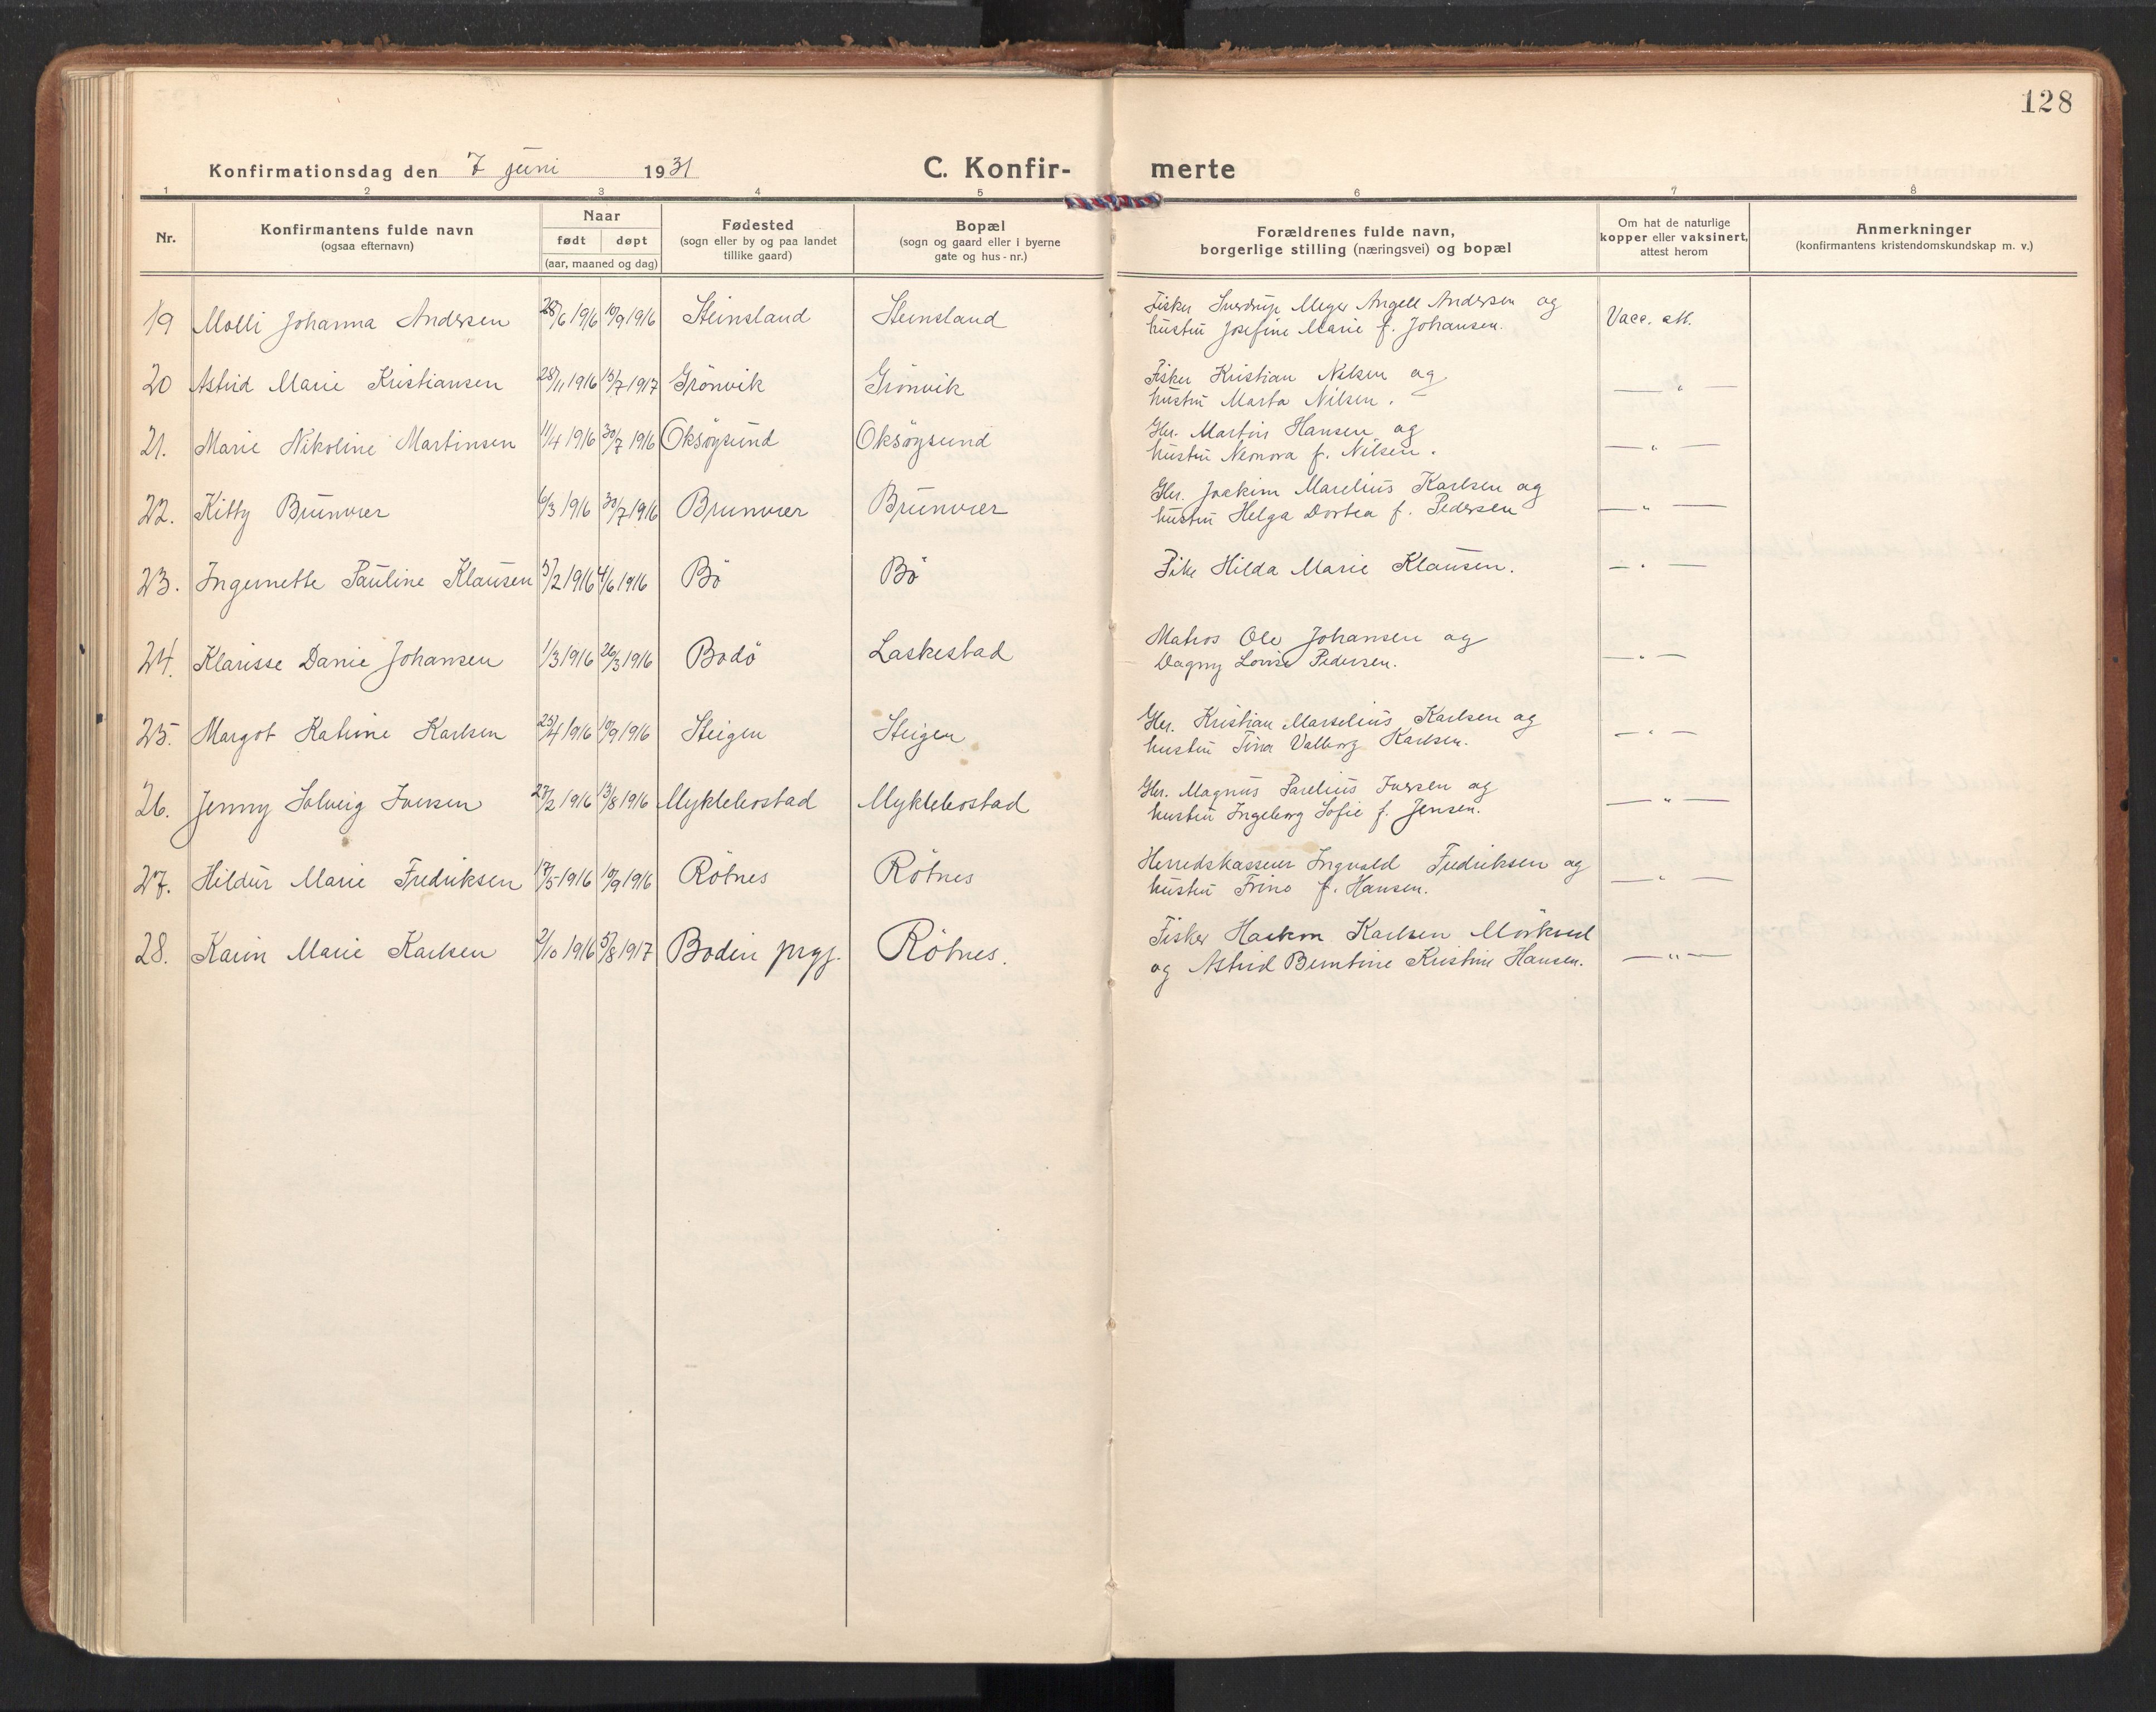 128
Konfirmationsdag den 7 juni 1931
C. Konfir-merte
1 2 3 4 5 6 7 8
Nr.
Konfirmantens fulde navn
(ogsaa efternavn)
Naar
født døpt
(aar, maaned og dag)
Fødested
(sogn eller by og paa landet
tillike gaard)
Bopæl
(sogn og gaard eller i byerne
gate og hus-nr.)
Forældrenes fulde navn,
borgerlige stilling (næringsvei) og bopæl
Om hat de naturlige
kopper eller vaksinert,
attest herom
Anmerkninger
(konfirmantens kristendomskundskap m. v.)
19 Molli Johanna Andersen 28/6 1916 10/9 1916 Steinsland Steinsland Fisker Sverdrup Meyer Angell Andersen og
hustru Josefine Marie f. Johansen. Vacc. att.
20 Astrid Marie Kristiansen 28/11 1916 15/7 1917 Grönvik Grönvik Fisker Kristian Nilsen og
hustru Marta Nilsen. — " —
21. Marie Nikoline Martinsen 11/4 1916 30/7 1916 Oksöysund Oksöysund Gbr. Martin Hansen og
hustru Neonora f. Nilsen. — " —
22. Kitty Brunvær 6/3 1916 30/7 1916 Brunvær Brunvær Gbr. Joakim Marelius Karlsen og
hustru Helga Dortea f. Pedersen — " —
23. Ingernette Pauline Klausen 5/2 1916 4/6 1916 Bö Bö Pike Hilda Marie Klausen. — " —
24. Klarisse Danie Johansen 1/3 1916 26/3 1916 Bodö Laskestad Matros Ole Johansen og
Dagny Lovise Pedersen. — " —
25. Margot Katrine Karlsen 25/4 1916 10/9 1916 Steigen Steigen Gbr. Kristian Marselius Karlsen og
hustru Tina Valborg Karlsen. — " —
26. Jenny Solveig Iversen 27/2 1916 13/8 1916 Myklebostad Myklebostad Gbr. Magnus Parelius Iversen og
hustru Ingeborg Sofie f. Jensen. — " —
27. Hildur Marie Fredriksen 17/5 1916 10/9 1916 Rötnes Rötnes Herredskasserer Ingvald Fredriksen og
hustru Trine f. Hansen. — " —
28. Karin Marie Karlsen 2/10 1916 5/8 1917 Bodin prgj. Rötnes. Fisker Haakon Karlsen Mörkved
og Astrid Berntine Kristine Hansen. — " —